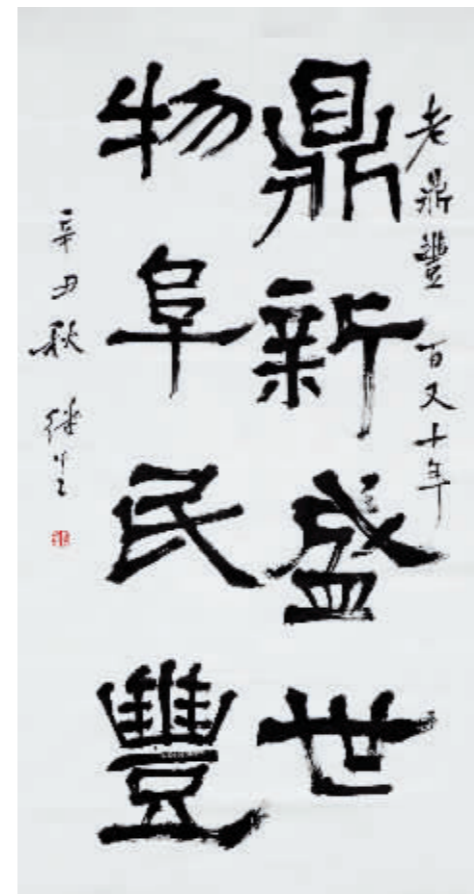 老鼎豐 百又十年
鼎新盛世
物阜民豐
辛丑秋